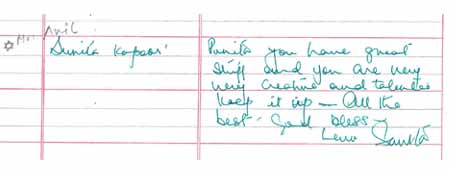 Mr. Anil
Sunita Kapoor. Punita you have great
stuff and you are very
very creative and talented
keep it up - All the
best. God bless
Love Sunita